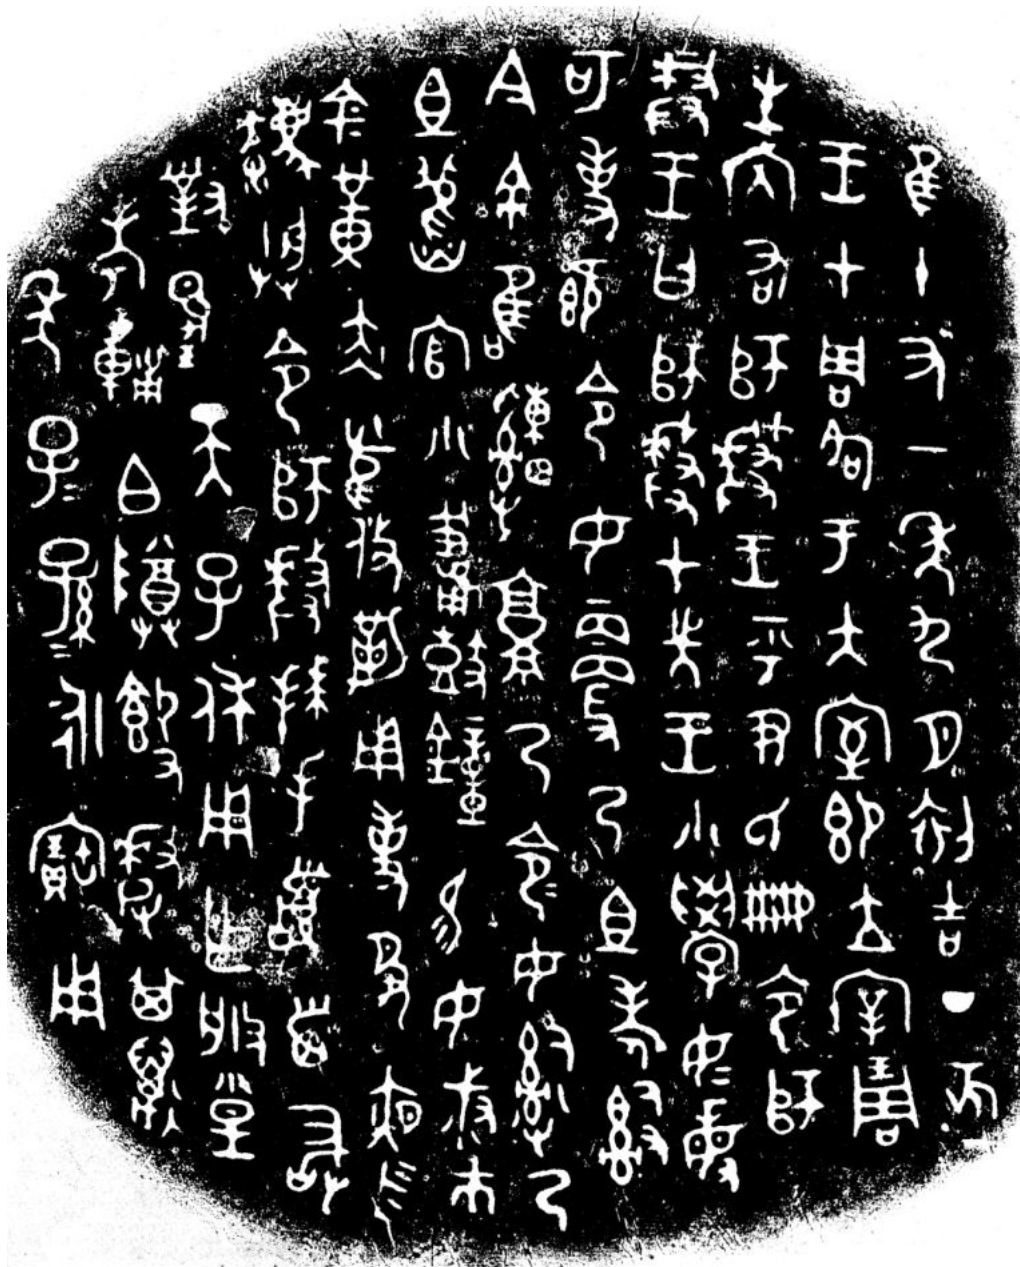 隹十又一年九月初吉丁亥
王才周各于大室即立宰琱
生內右師𠭰王乎尹氏冊令師
𠭰王曰師𠭰才先王小學女敏
可事既令女更乃且考𤔲
今余唯𤕌𩫖乃令令女𤔲乃
且舊官小輔鼓鐘易女叔市
金黃赤舄攸勒用事敬夙夜勿
灋朕令師𠭰拜手𩒨首敢
對揚天子休用乍朕皇
考輔白尊簋𠭰其萬
年子子孫孫永寶用